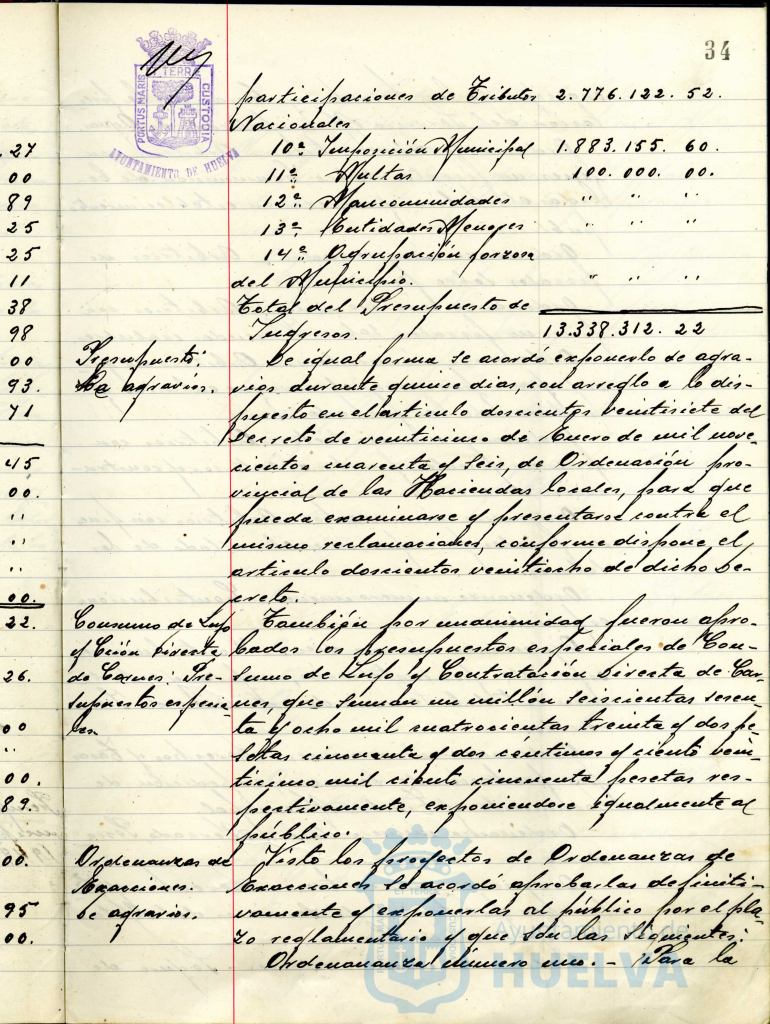 34
PORTUS MARIS ET TERRE CUSTODIA
AYUNTAMIENTO DE HUELVA
participaciones de Tributos 2.776.122. 52.
Nacionales
10ª Imposición Municipal 1.883.155. 60.
11ª Multas 100.000. 00.
12ª Mancomunidades " " "
13ª Entidades Menores " " "
14ª Agrupación forzosa
del Municipio. " " "
Total del Presupuesto de
Ingresos. 13.338.312. 22
Presupuesto:
De agravios.
De igual forma se acordó exponerlo de agra-
vios durante quince dias, con arreglo a lo dis-
puesto en el articulo doscientos veintisiete del
Decreto de veinticinco de Enero de mil nove-
cientos cuarenta y seis, de Ordenación pro-
vincial de las Haciendas locales, para que
pueda examinarse y presentarse contra el
mismo reclamaciones, conforme dispone el
articulo doscientos veintiocho de dicho De-
creto.
Consumo de Lujo
y Ción Directa
de Carnes: Pre-
supuestos especia-
les.
También por unanimidad fueron apro-
bados los presupuestos especiales de Con-
sumo de Lujo y Contratación Directa de Car-
nes, que suman un millón seiscientas sesen-
ta y ocho mil cuatrocientas treinta y dos pe-
setas cincuenta y dos céntimos y ciento vein-
ticinco mil ciento cincuenta pesetas res-
pectivamente, exponiendose igualmente al
público.
Ordenanzas de
Exacciones.
De agravios.
Visto los proyectos de Ordenanzas de
Exacciones se acordó aprobarlas definiti-
vamente y exponerlas al público por el pla-
zo reglamentario y que son las siguientes:
Ordenananza número uno. - Para la
. 27
00
89
25
25
11
38
98
00
93.
71
45
00.
"
"
"
00.
22.
26.
00
"
00.
89.
00.
95
00.
Ayuntamiento de
HUELVA